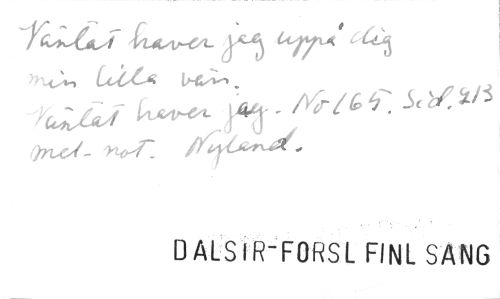 Väntat haver jag uppå dig
min lilla vän.
Väntat haver jag. No 165. Sid. 213
mel-not. Nyland.
DALSIR-FORSL FINL SANG